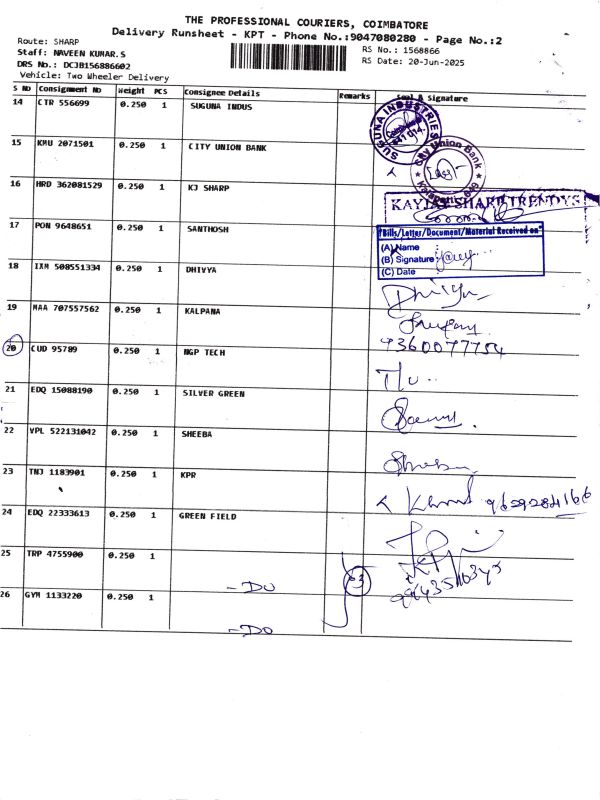 THE PROFESSIONAL COURIERS, COIMBATORE
Delivery Runsheet - KPT - Phone No.:9047080280 - Page No.:2
Route: SHARP
RS No.: 1568866
Staff: NAVEEN KUMAR.S
RS Date: 20-Jun-2025
DRS No.: DCJB156886602
Vehicle: Two Wheeler Delivery
S No Consignment No Weight PCS Consignee Details Remarks Seal & Signature
14 CTR 556699 0.250 1 SUGUNA INDUS
SUGUNA INDUSTRIES
15 KMU 2071501 0.250 1 CITY UNION BANK
City Union Bank
16 HRD 362081529 0.250 1 KJ SHARP
KAYJAY SHARP TRENDYS
17 PON 9648651 0.250 1 SANTHOSH
"Bills/Letter/Document/Material Received on"
(A) Name :
(B) Signature :
(C) Date :
18 IXM 508551334 0.250 1 DHIVYA
Dhivya
19 MAA 707557562 0.250 1 KALPANA
9360077754
20 CUD 95789 0.250 1 NGP TECH
21 EDQ 15088190 0.250 1 SILVER GREEN
22 VPL 522131042 0.250 1 SHEEBA
Sheeba
23 TNJ 1183901 0.250 1 KPR
9629284166
24 EDQ 22333613 0.250 1 GREEN FIELD
25 TRP 4755900 0.250 1
- DO
26 GYM 1133220 0.250 1
- DO